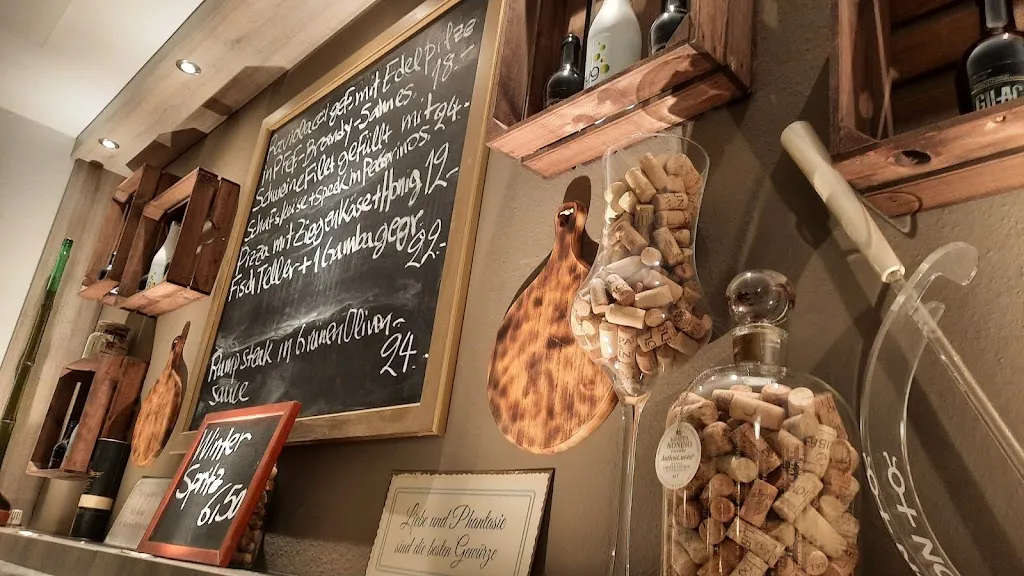 mit Edelpilze
in Pfef.-Brandy-Sahnes. 18.-
Schweinefilet gefüllt mit
Schafskäse+speck in Peperonisos 24.-
Pizza mit Ziegenkäse+Honig 12-
Fisch Teller+1Gambageger. 22.-
Rumpsteak in Grünen Oliven-
sauce 24.-
Winter
Spritz
6,50
Liebe und Phantasie
sind die besten Gewürze